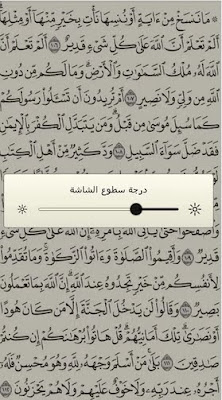 ۞ مَا نَنسَخْ مِنْ ءَايَةٍ أَوْ نُنسِهَا نَأْتِ بِخَيْرٍ مِّنْهَا أَوْ مِثْلِهَا
أَلَمْ تَعْلَمْ أَنَّ ٱللَّهَ عَلَىٰ كُلِّ شَىْءٍ قَدِيرٌ ١٠٦ أَلَمْ تَعْلَمْ أَنَّ
ٱللَّهَ لَهُۥ مُلْكُ ٱلسَّمَٰوَٰتِ وَٱلْأَرْضِ وَمَا لَكُم مِّن دُونِ
ٱللَّهِ مِن وَلِىٍّ وَلَا نَصِيرٍ ١٠٧ أَمْ تُرِيدُونَ أَن تَسْـَٔلُوا۟ رَسُولَكُمْ
كَمَا سُئِلَ مُوسَىٰ مِن قَبْلُ وَمَن يَتَبَدَّلِ ٱلْكُفْرَ بِٱلْإِيمَٰنِ
فَقَدْ ضَلَّ سَوَآءَ ٱلسَّبِيلِ ١٠٨ وَدَّ كَثِيرٌ مِّنْ أَهْلِ ٱلْكِتَٰبِ
درجة سطوع الشاشة
وَٱصْفَحُوا۟ حَتَّىٰ يَأْتِىَ ٱللَّهُ بِأَمْرِهِۦٓ إِنَّ ٱللَّهَ عَلَىٰ
قَدِيرٌ ١٠٩ وَأَقِيمُوا۟ ٱلصَّلَوٰةَ وَءَاتُوا۟ ٱلزَّكَوٰةَ وَمَا تُقَدِّمُوا۟
لِأَنفُسِكُم مِّنْ خَيْرٍ تَجِدُوهُ عِندَ ٱللَّهِ إِنَّ ٱللَّهَ بِمَا تَعْمَلُونَ
بَصِيرٌ ١١٠ وَقَالُوا۟ لَن يَدْخُلَ ٱلْجَنَّةَ إِلَّا مَن كَانَ هُودًا
أَوْ نَصَٰرَىٰ تِلْكَ أَمَانِيُّهُمْ قُلْ هَاتُوا۟ بُرْهَٰنَكُمْ إِن كُنتُمْ
صَٰدِقِينَ ١١١ بَلَىٰ مَنْ أَسْلَمَ وَجْهَهُۥ لِلَّهِ وَهُوَ مُحْسِنٌ فَلَهُۥٓ
أَجْرُهُۥ عِندَ رَبِّهِۦ وَلَا خَوْفٌ عَلَيْهِمْ وَلَا هُمْ يَحْزَنُونَ ١١٢